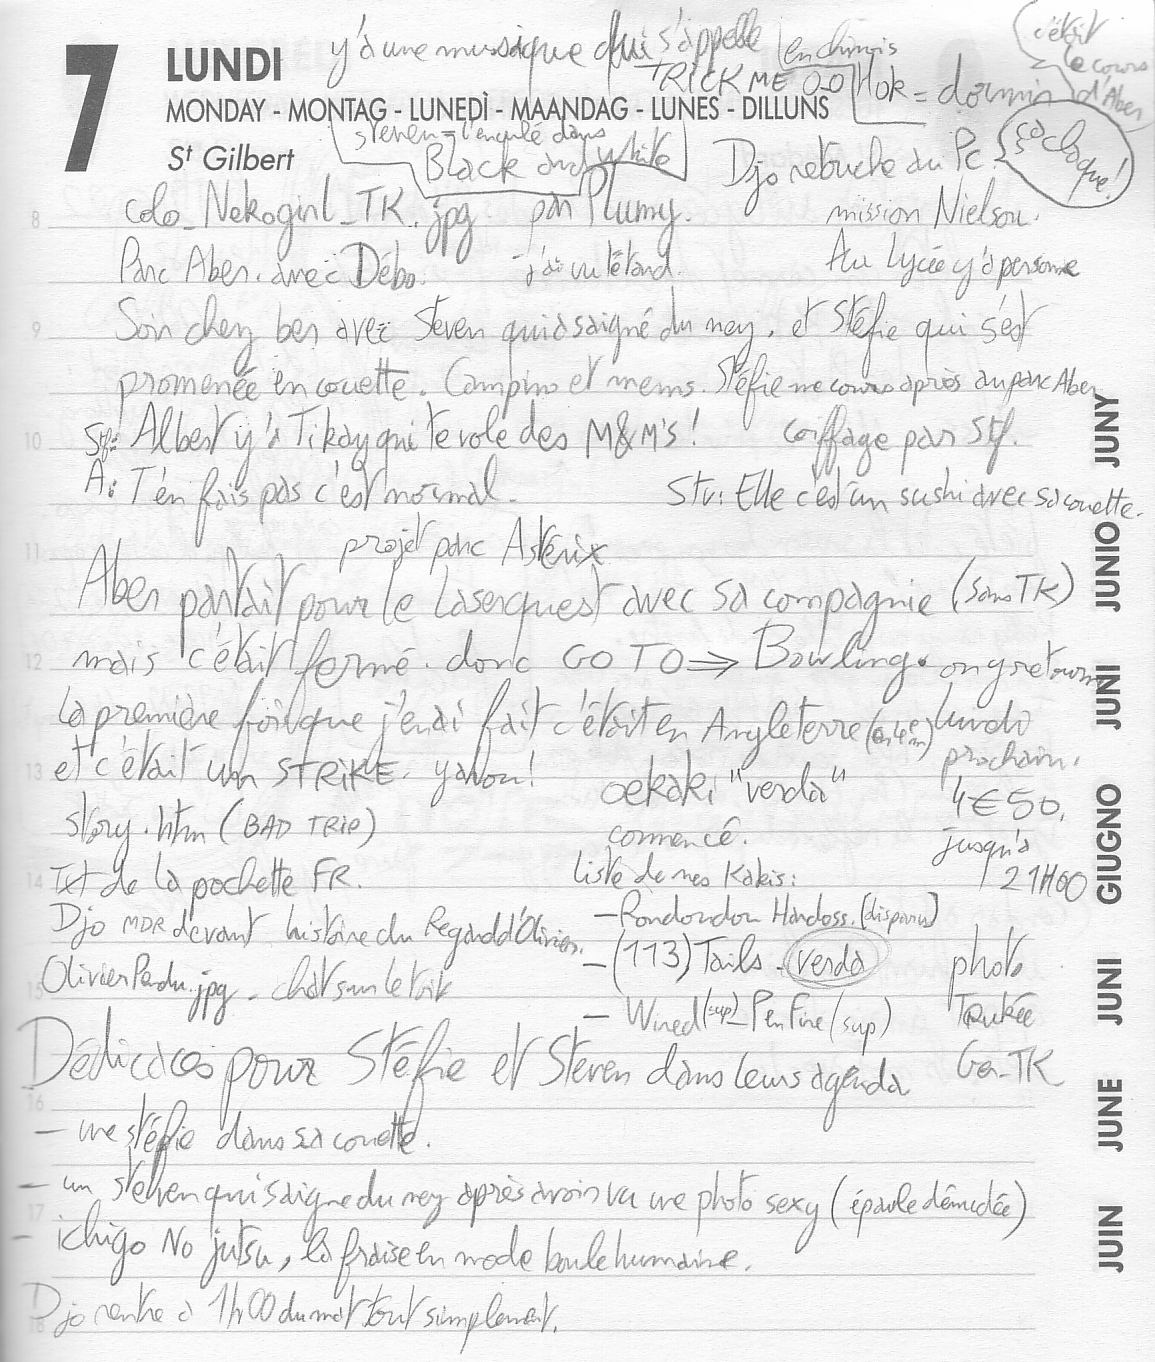 7
LUNDI
y'a une musique qui s'appelle
TRICK ME
en chinois
Hok = dormir
c'était
le cours
d'Aber
MONDAY - MONTAG - LUNEDÌ - MAANDAG - LUNES - DILLUNS
St Gilbert
steven = l'enculé dans
Black and White
Djo retouche au Pc.
ça claque!
8
colo_Nekogirl_TK.jpg par Plumy.
mission Nielson.
Parc Aber. avec Débo.
j'ai vu l'étand.
Au Lycée y'a personne
9
Soin chez ber avec Steven qui a saigné du nez. et Stéfie qui s'est
promenée en couette. Campino et mems. Stéfie me cours après au parc Aber
10
Stf: Albert y'a Tikay qui te vole des M&M's!
coiffage par Stf.
A: T'en fais pas c'est normal.
Stv: Elle c'est un sushi avec sa couette.
11
projet parc Astérix
Aber partait pour le Laserquest avec sa compagnie (sans TK)
12
mais c'était fermé. donc GO TO ⇒ Bowling. on y retourne
lundi
prochain.
4€50.
jusqu'à
21H00
La première fois que j'en ai fait c'était en Angleterre (en 4èm)
13
et c'était un STRIKE. yahou!
oekaki "verda"
commencé.
story.htm (BAD TRIP)
14
Txt de la pochette FR.
liste de mes Kakis:
Djo MDR devant histoire du Regard d'Olivier.
- Rondoudou Hardoss. (disparu)
- (113) Tails - verda
15
OlivierPerdu.jpg - chat sur le toit
- Wired (sup) - PenFine (sup)
photo
Trukée
Ga-TK
Dédicaces pour Stéfie et Steven dans leurs agenda
16
- une stéfie dans sa couette.
- un steven qui saigne du nez après avoir vu une photo sexy (épaule dénudée)
17
- ichigo No jutsu, la fraise en mode boule humaine.
18
Djo rentre à 1h00 du mat tout simplement.
JUIN JUNE JUNI GIUGNO JUNI JUNIO JUNY